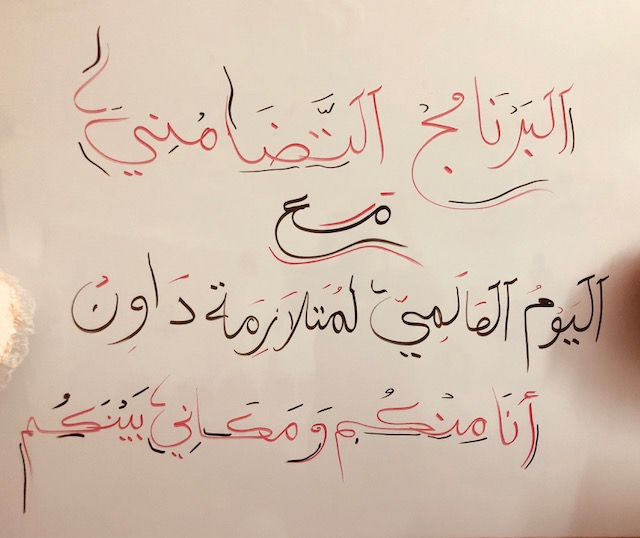 اَلبَرْنَامُجْ اَلتَّضَامُنِيَ
مَع
اَليَوْمُ اَلعَالَمِيّ لُمَتَلاَزِمَة دَاوِنْ
أَنَا مِنْكُم وَ مَكَانِي بَيْنَكُم